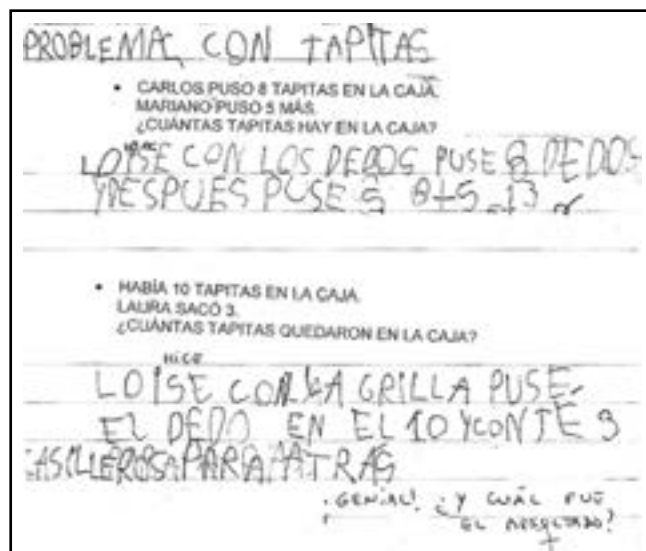 PROBLEMA CON TAPITAS
• CARLOS PUSO 8 TAPITAS EN LA CAJA.
MARIANO PUSO 5 MÁS.
¿CUÁNTAS TAPITAS HAY EN LA CAJA?
HICE
LO ISE CON LOS DEDOS PUSE 8 DEDOS
Y DESPUES PUSE 5 8+5=13
• HABÍA 10 TAPITAS EN LA CAJA.
LAURA SACÓ 3.
¿CUÁNTAS TAPITAS QUEDARON EN LA CAJA?
HICE
LO ISE CON LA GRILLA PUSE
EL DEDO EN EL 10 Y CONTÉ 3
CASILLEROS PARA ATRAS
¡GENIAL! ¿Y CUÁL FUE
EL RESULTADO?